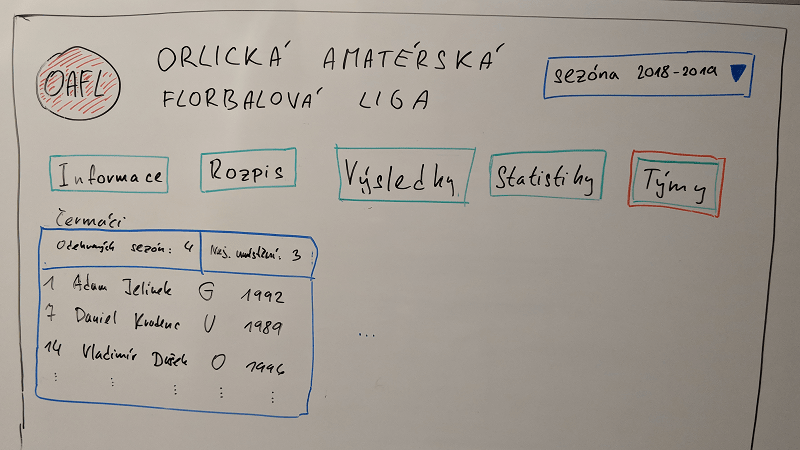 OAFL
ORLICKÁ AMATÉRSKÁ
FLORBALOVÁ LIGA
sezóna 2018-2019
Informace
Rozpis
Výsledky
Statistiky
Týmy
Čermáci
Odehraných sezón: 4
Nej. umístění: 3
1 Adam Jelínek G 1992
7 Daniel U 1989
14 Vladimír Dušek O 1996
...